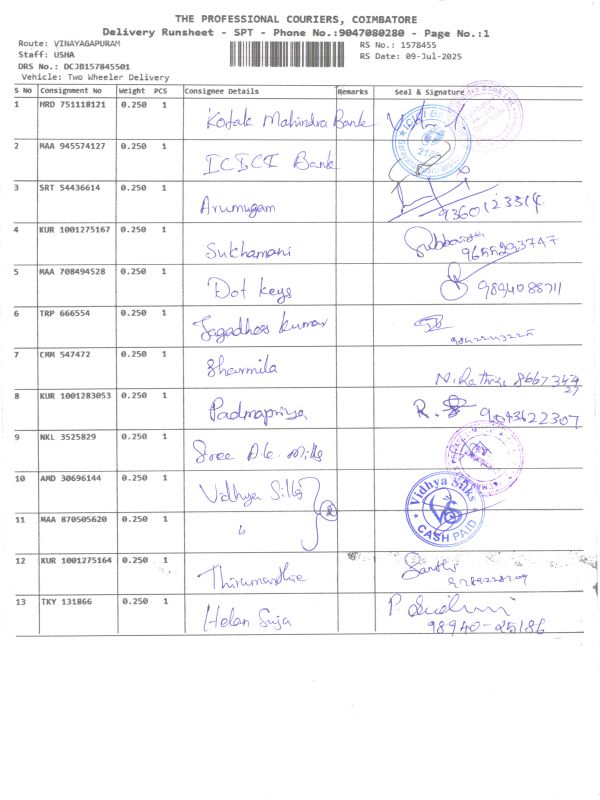 THE PROFESSIONAL COURIERS, COIMBATORE
Delivery Runsheet - SPT - Phone No.:9047080280 - Page No.:1
Route: VINAYAGAPURAM RS No.: 1578455
Staff: USHA RS Date: 09-Jul-2025
DRS No.: DCJB157845501
Vehicle: Two Wheeler Delivery
S No Consignment No Weight PCS Consignee Details Remarks Seal & Signature
1 HRD 751118121 0.250 1 Kotak Mahindra Bank
2 MAA 945574127 0.250 1 ICICI Bank
3 SRT 54436614 0.250 1 Arumugam 9360123314
4 KUR 1001275167 0.250 1 Sukhamani 9655293747
5 MAA 708494528 0.250 1 Dot Keys 9894088711
6 TRP 666554 0.250 1 Jegadhees Kumar
7 CMM 547472 0.250 1 Sharmila N. Rathi 8667344
27
8 KUR 1001283053 0.250 1 Padmapriya R. 9643622307
9 NKL 3525829 0.250 1 Sree Mills
10 AMD 30696144 0.250 1 Vidhya Silks 2 Vidhya Silks VS CASH PAID
11 MAA 870505620 0.250 1 "
12 KUR 1001275164 0.250 1 Santhi
13 TKY 131866 0.250 1 Helan Suja P.
98940-25186